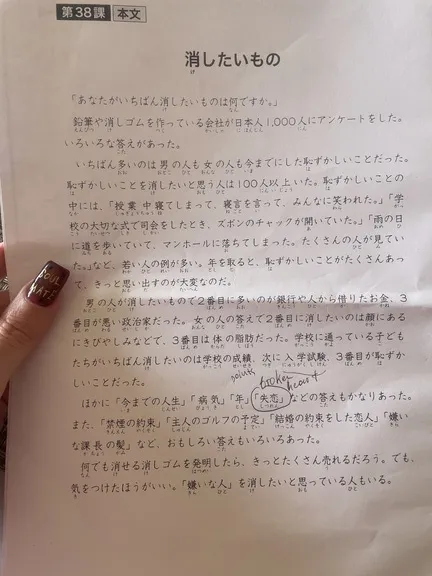 第38課 本文
消したいもの
「あなたがいちばん消したいものは何ですか。」
鉛筆や消しゴムを作っている会社が日本人1,000人にアンケートをした。
いろいろな答えがあった。
いちばん多いのは男の人も女の人も今までにした恥ずかしいことだった。
恥ずかしいことを消したいと思う人は100人以上いた。恥ずかしいことの
中には、「授業中寝てしまって、寝言を言って、みんなに笑われた。」「学
校の大切な式で司会をしたとき、ズボンのチャックが開いていた。」「雨の日
に道を歩いていて、マンホールに落ちてしまった。たくさんの人が見てい
た。」など、若い人の例が多い。年を取ると、恥ずかしいことがたくさんあっ
て、きっと思い出すのが大変なのだ。
男の人が消したいもので2番目に多いのが銀行や人から借りたお金、3
番目が悪い政治家だった。女の人の答えで2番目に消したいのは顔にある
にきびやしみなどで、3番目は体の脂肪だった。学校に通っている子ど
もたちがいちばん消したいのは学校の成績、次に入学試験、3番目が恥ずか
しいことだった。
points
broken heart
ほかに「今までの人生」「病気」「年」「失恋」などの答えもかなりあった。
また、「禁煙の約束」「主人のゴルフの予定」「結婚の約束をした恋人」「嫌い
な課長の髪」など、おもしろい答えもいろいろあった。
何でも消せる消しゴムを発明したら、きっとたくさん売れるだろう。でも、
気をつけたほうがいい。「嫌いな人」を消したいと思っている人もいる。